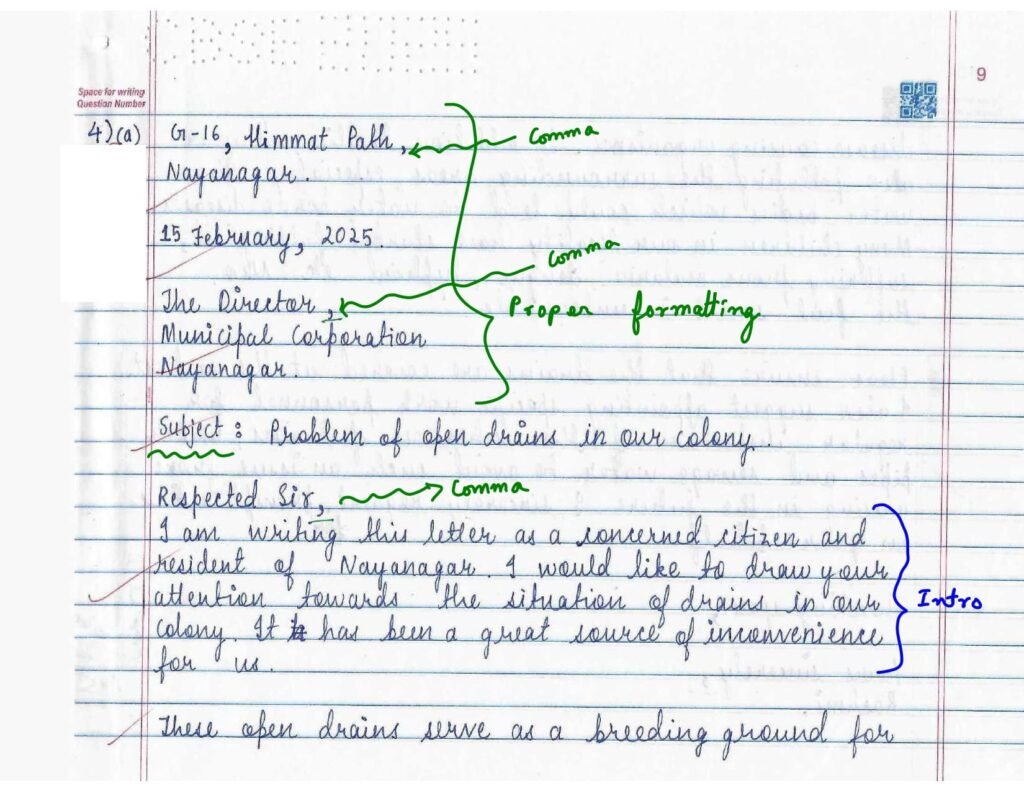 9
Space for writing
Question Number
4)(a) G-16, Himmat Path, Comma
Nayanagar.
15 February, 2025.
Comma
The Director, Proper formatting
Municipal Corporation
Nayanagar.
Subject : Problem of open drains in our colony.
Respected Sir, Comma
I am writing this letter as a concerned citizen and
resident of Nayanagar. I would like to draw your
attention towards the situation of drains in our Intro
colony. It has been a great source of inconvenience
for us.
These open drains serve as a breeding ground for